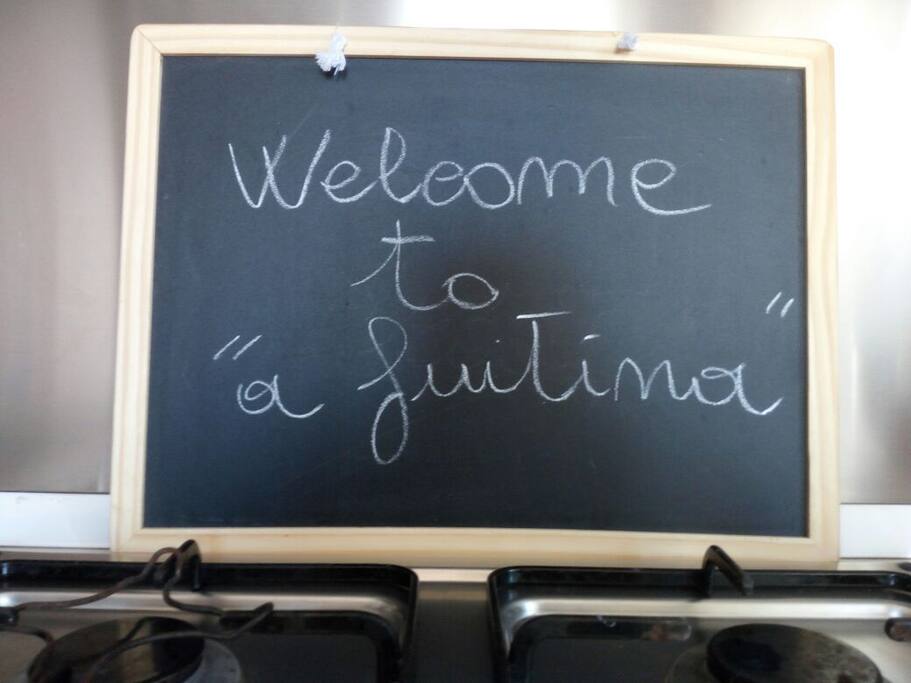 Welcome
to
"a fuitina"